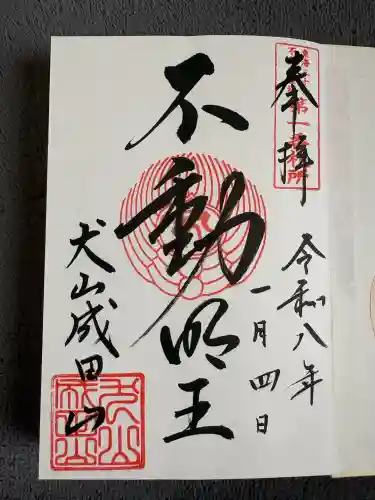 奉拝
令和八年
一月四日
不動明王
犬山成田山